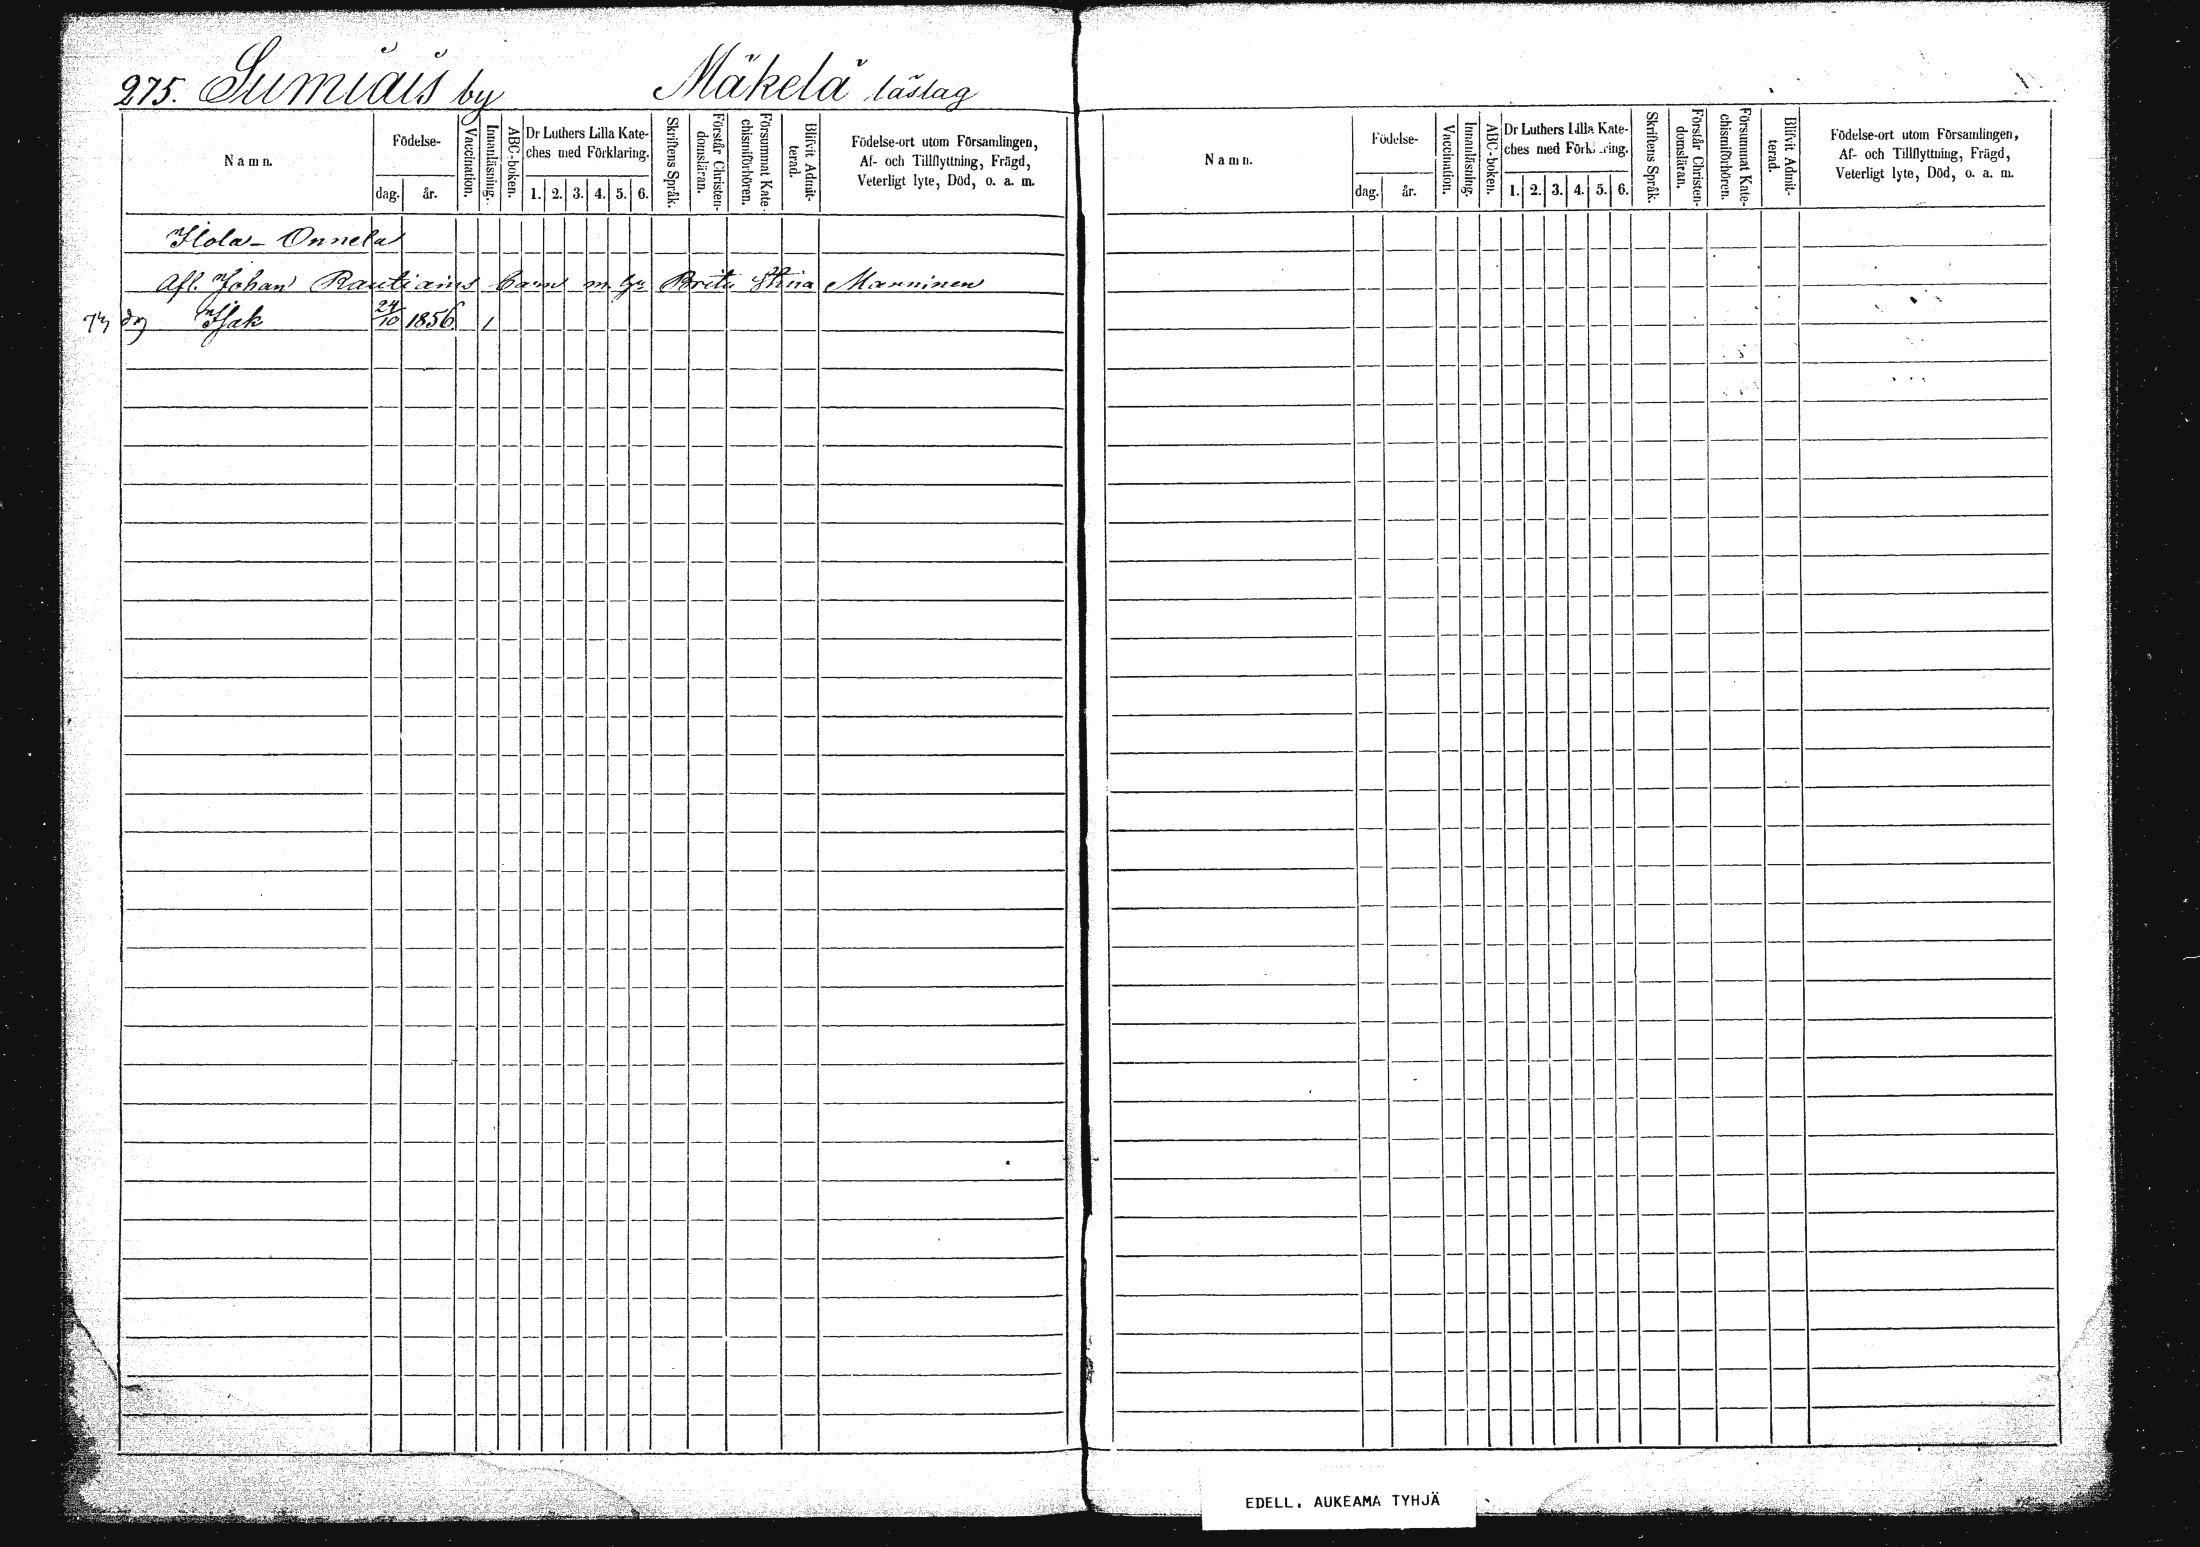 275. Sumiais by Mäkelä läslag
Namn. Födelse- dag. år. Vaccination. Innanläsning. ABC-boken. Dr Luthers Lilla Kateches med Förklaring. 1. 2. 3. 4. 5. 6. Skriftens Språk. Förstår Christendomsläran. Försummat Katechismiförhören. Blifvit Admitterad. Födelse-ort utom Församlingen, Af- och Tillflyttning, Frägd, Veterligt lyte, Död, o. a. m.
Ilola - Onnela
Afl. Johan Rautiains barn m. Brita Stina Manninen
Isak 24/10 1856 1
Namn. Födelse- dag. år. Vaccination. Innanläsning. ABC-boken. Dr Luthers Lilla Kateches med Förklaring. 1. 2. 3. 4. 5. 6. Skriftens Språk. Förstår Christendomsläran. Försummat Katechismiförhören. Blifvit Admitterad. Födelse-ort utom Församlingen, Af- och Tillflyttning, Frägd, Veterligt lyte, Död, o. a. m.
EDELL. AUKEAMA TYHJÄ